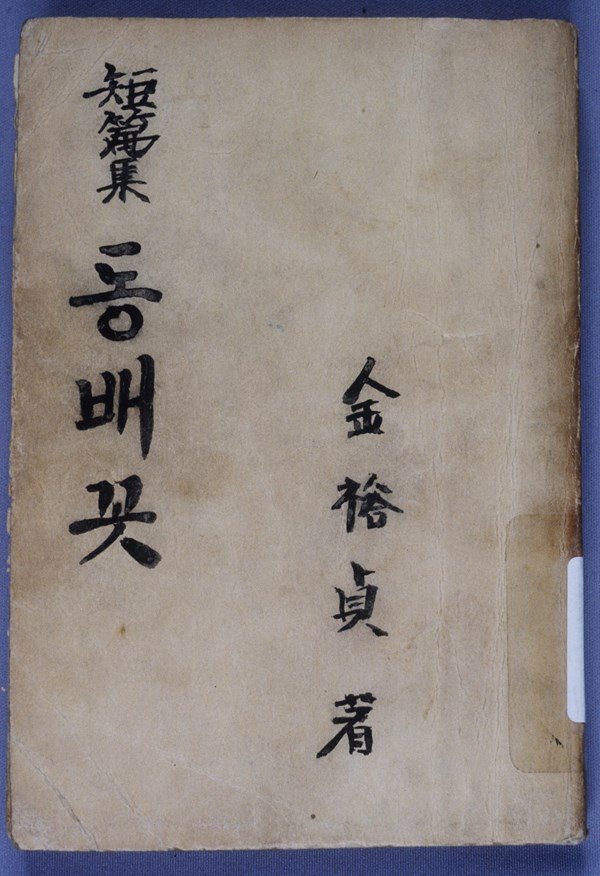 短篇集 동배꼿
金裕貞 著